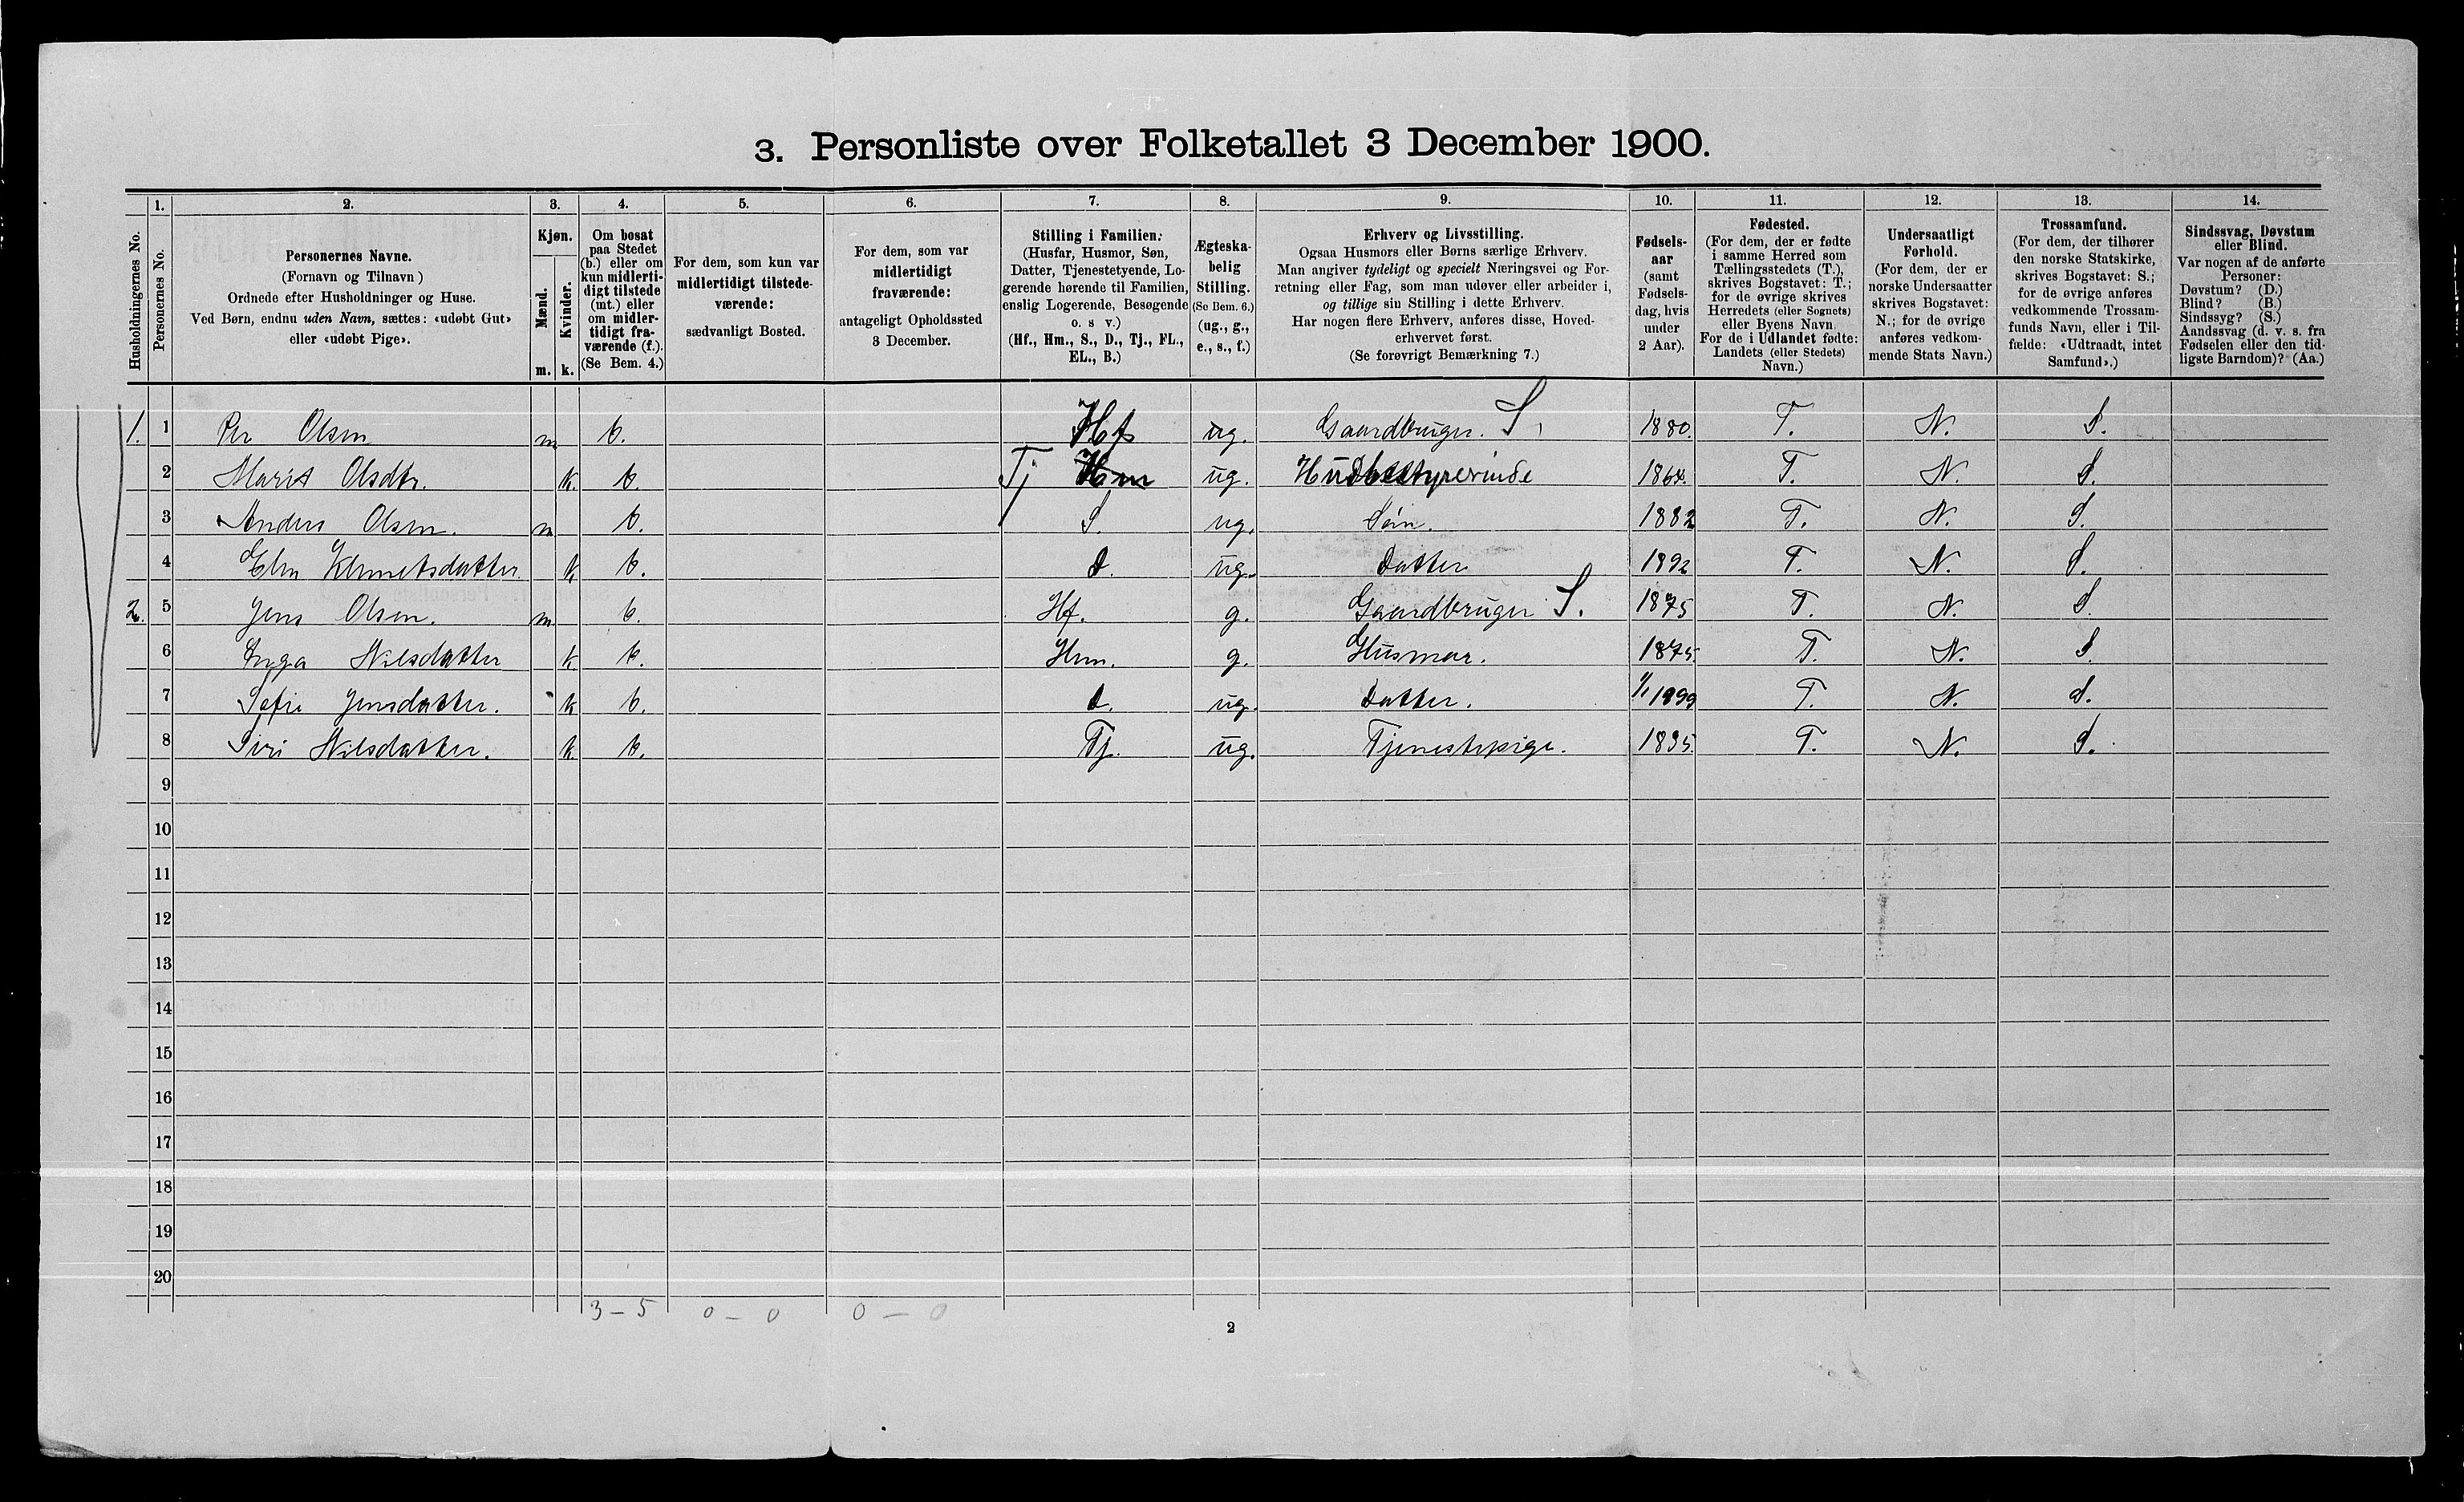 3. Personliste over Folketallet 3 December 1900.
Husholdningernes No.
1.
Personernes No.
2.
Personernes Navne.
(Fornavn og Tilnavn)
Ordnede efter Husholdninger og Huse.
Ved Børn, endnu uden Navn, sættes: «udøbt Gut»
eller «udøbt Pige».
3.
Kjøn.
Mænd.
Kvinder.
m.
k.
4.
Om bosat
paa Stedet
(b.) eller om
kun midlerti-
digt tilstede
(mt.) eller
om midler-
tidigt fra-
værende (f.).
(Se Bem. 4.)
5.
For dem, som kun var
midlertidigt tilstede-
værende:
sædvanligt Bosted.
6.
For dem, som var
midlertidigt
fraværende:
antageligt Opholdssted
3 December.
7.
Stilling i Familien:
(Husfar, Husmor, Søn,
Datter, Tjenestetyende, Lo-
gerende hørende til Familien,
enslig Logerende, Besøgende
o. s v.)
(Hf., Hm., S., D., Tj., FL.,
EL., B.)
8.
Ægteska-
belig
Stilling.
(Se Bem. 6.)
(ug., g.,
e., s., f.)
9.
Erhverv og Livsstilling.
Ogsaa Husmors eller Børns særlige Erhverv.
Man angiver tydeligt og specielt Næringsvei og For-
retning eller Fag, som man udøver eller arbeider i,
og tillige sin Stilling i dette Erhverv.
Har nogen flere Erhverv, anføres disse, Hoved-
erhvervet først.
(Se forøvrigt Bemærkning 7.)
10.
Fødsels-
aar
(samt
Fødsels-
dag, hvis
under
2 Aar).
11.
Fødested.
(For dem, der er fødte
i samme Herred som
Tællingsstedets (T.),
skrives Bogstavet: T.;
for de øvrige skrives
Herredets (eller Sognets)
eller Byens Navn
For de i Udlandet fødte:
Landets (eller Stedets)
Navn.)
12.
Undersaatligt
Forhold.
(For dem, der er
norske Undersaatter
skrives Bogstavet:
N.; for de øvrige
anføres vedkom-
mende Stats Navn.)
13.
Trossamfund.
(For dem, der tilhører
den norske Statskirke,
skrives Bogstavet: S.;
for de øvrige anføres
vedkommende Trossam-
funds Navn, eller i Til-
fælde: «Udtraadt, intet
Samfund».)
14.
Sindssvag, Døvstum
eller Blind.
Var nogen af de anførte
Personer:
Døvstum? (D.)
Blind? (B.)
Sindssyg? (S.)
Aandssvag (d. v. s. fra
Fødselen eller den tid-
ligste Barndom)? (Aa.)
1. 1 Per Olsen m b. Hf ug. Gaardbruger. S. 1880. T. N. S.
2 Marit Olsdtr. k. b. Tj Hm ug. Husbestyrerinde T. N. S.
3 Anders Olsen. m b. S. ug. Søn. 1882 T. N. S.
4 Elen Klemetsdatter k b. d. ug. datter 1892 T. N. S.
2. 5 Jens Olsen. m b. Hf. g. Gaardbruger S. 1875 T. N. S.
6 Inga Nilsdatter k. b. Hm. g. Husmor. 1875. T. N. S.
7 Sofie Jensdatter. k b. d. ug. datter. 1899 T. N. S.
8 Siri Nilsdatter. k. b. Tj. ug. Tjenestepige. T. N. S.
9
10
11
12
13
14
15
16
17
18
19
20
3 – 5 0 – 0 0 – 0
2